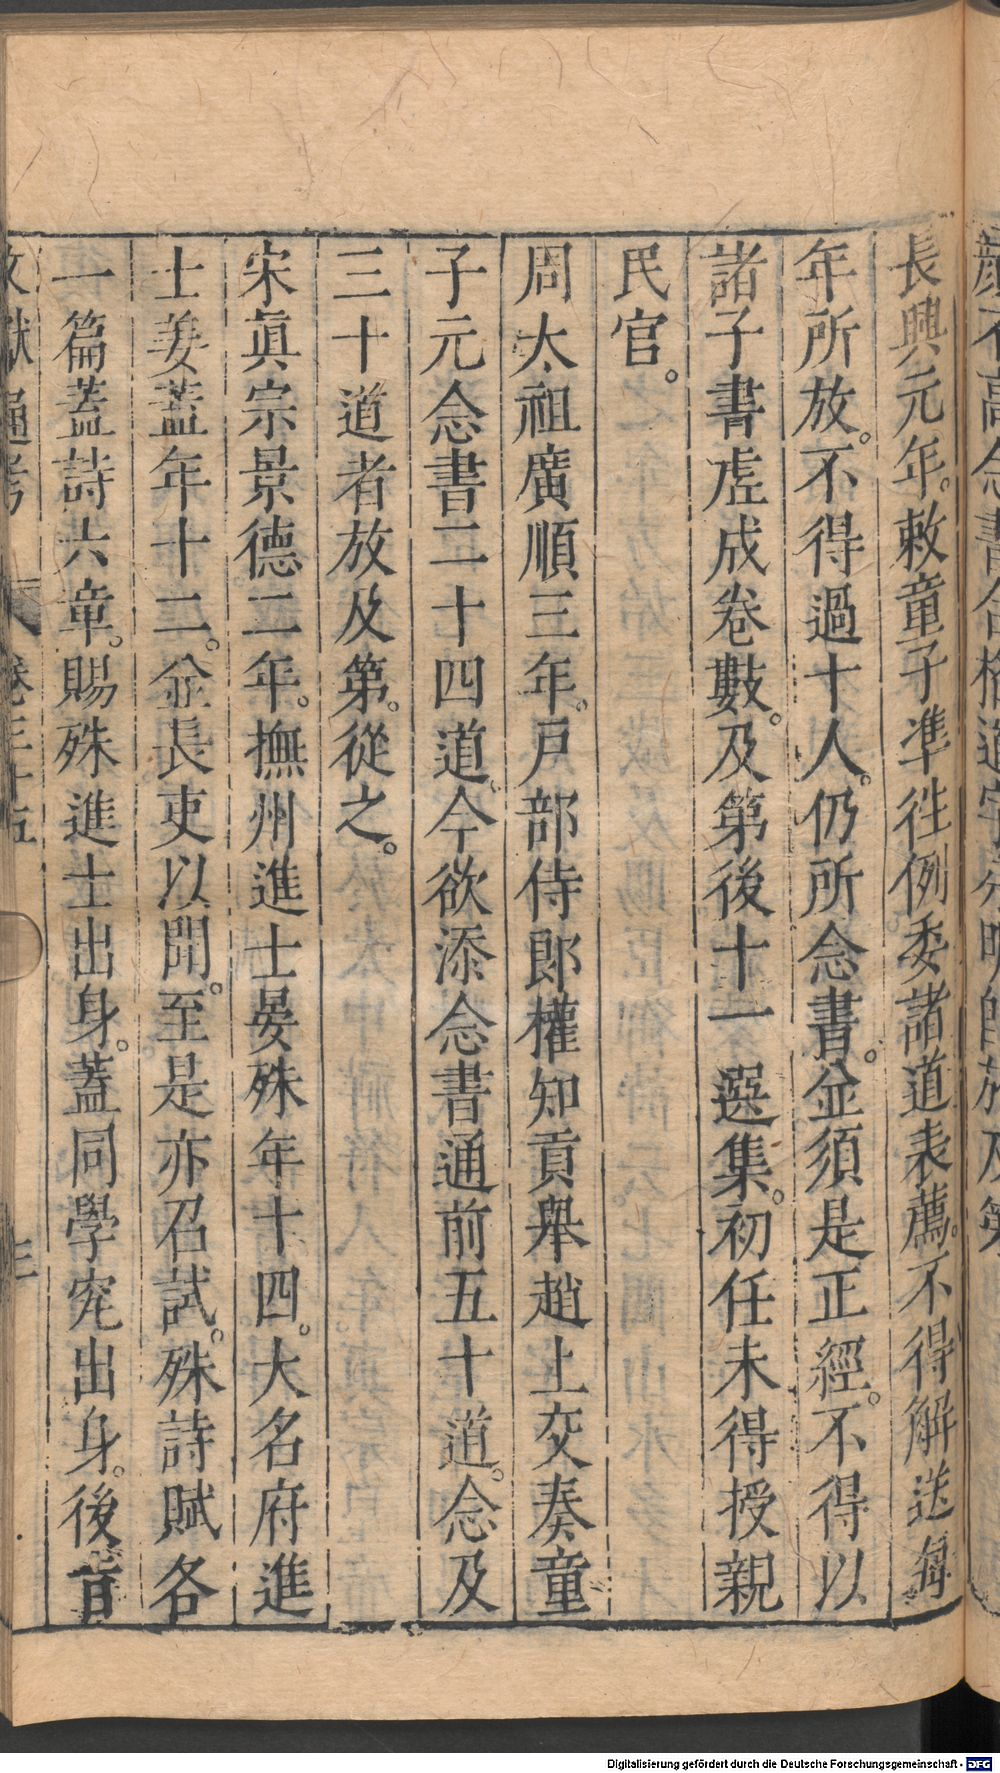 長興元年。敕童子準徃例。委諸道表薦。不得解送。每
年所放。不得過十人。仍所念書。並須是正經。不得以
諸子書虛成卷數。及第後十一選集。初任未得授親
民官。
周太祖廣順三年。戸部侍郎權知貢舉趙上交奏童
子元念書二十四道。今欲添念書通前五十道。念及
三十道者放及第。從之。
宋眞宗景德二年。撫州進士晏殊年十四。大名府進
士姜蓋年十二。並長吏以聞。至是亦召試。殊詩賦各
一篇蓋詩六章。賜殊進士出身。蓋同學究出身。後
文獻通考 卷三十五 三
Digitalisierung gefördert durch die Deutsche Forschungsgemeinschaft - DFG